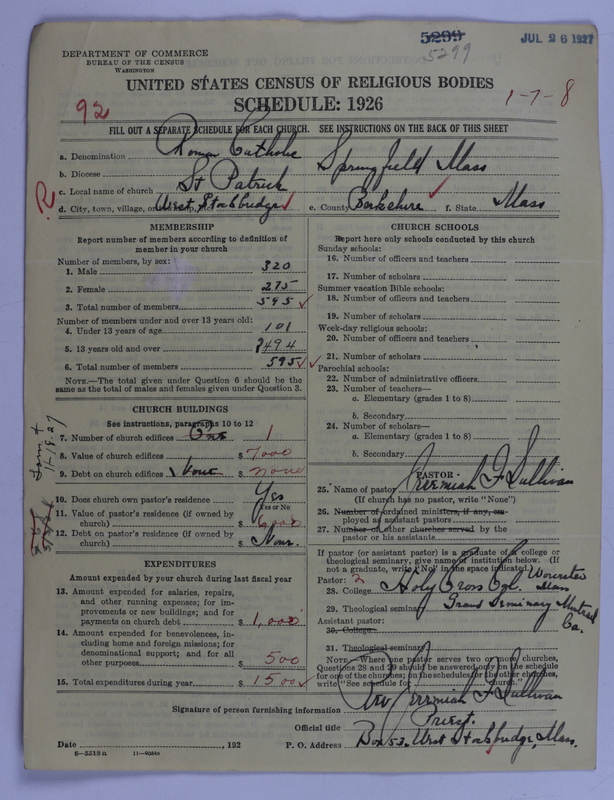 5299
5299
JUL 26 1927
DEPARTMENT OF COMMERCE
BUREAU OF THE CENSUS
WASHINGTON
UNITED STATES CENSUS OF RELIGIOUS BODIES
SCHEDULE: 1926
92
1-7-8
FILL OUT A SEPARATE SCHEDULE FOR EACH CHURCH. SEE INSTRUCTIONS ON THE BACK OF THIS SHEET
a. Denomination Roman Catholic
b. Diocese Springfield Mass
c. Local name of church St Patrick
R
d. City, town, village, or West Stockbridge e. County Berkshire f. State Mass
MEMBERSHIP
Report number of members according to definition of member in your church
Number of members, by sex:
1. Male 320
2. Female 275
3. Total number of members 595
Number of members under and over 13 years old:
4. Under 13 years of age 101
5. 13 years old and over 494
6. Total number of members 595
NOTE.—The total given under Question 6 should be the same as the total of males and females given under Question 3.
CHURCH BUILDINGS
See instructions, paragraphs 10 to 12
7. Number of church edifices One 1
8. Value of church edifices $ 7000
9. Debt on church edifices None $ none
10. Does church own pastor's residence Yes
(Yes or No)
11. Value of pastor's residence (if owned by church) $ 6000
12. Debt on pastor's residence (if owned by church) $ None.
11-19-27
EXPENDITURES
Amount expended by your church during last fiscal year
13. Amount expended for salaries, repairs, and other running expenses; for improvements or new buildings; and for payments on church debt $ 1,000
14. Amount expended for benevolences, including home and foreign missions; for denominational support; and for all other purposes $ 500
15. Total expenditures during year $ 1500
CHURCH SCHOOLS
Report here only schools conducted by this church
Sunday schools:
16. Number of officers and teachers
17. Number of scholars
Summer vacation Bible schools:
18. Number of officers and teachers
19. Number of scholars
Week-day religious schools:
20. Number of officers and teachers
21. Number of scholars
Parochial schools:
22. Number of administrative officers
23. Number of teachers—
a. Elementary (grades 1 to 8)
b. Secondary
24. Number of scholars—
a. Elementary (grades 1 to 8)
b. Secondary
PASTOR
25. Name of pastor Jeremiah F Sullivan
(If church has no pastor, write "None")
26. Number of ordained ministers, if any, employed as assistant pastors
27. Number of other churches served by the pastor or his assistants
If pastor (or assistant pastor) is a graduate of a college or theological seminary, give name of institution below. (If not a graduate, write "No" in the space indicated.)
Pastor: 2
28. College Holy Cross Col. Worcester Mass
29. Theological seminary Grand Seminary Montreal Ca.
Assistant pastor:
30. College
31. Theological seminary
NOTE.—Where one pastor serves two or more churches, Questions 28 and 29 should be answered only on the schedule for one of the churches; on the schedules for the other churches, write "See schedule for church."
Signature of person furnishing information Rev Jeremiah F Sullivan
Official title Priest.
Date , 192 P. O. Address Box 53. West Stockbridge, Mass.
8—5518a 11—9084a